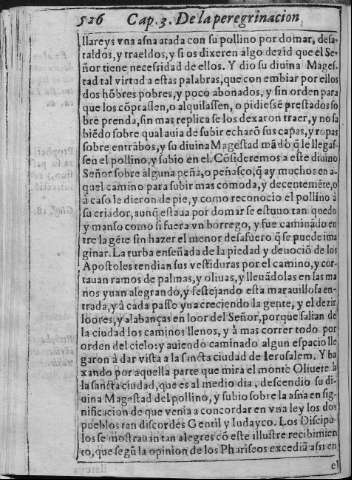 526 Cap. 3. De la peregrinacion
llareys vna asna atada con su pollino por domar, desa-
taldos, y traeldos, y si os dixeren algo dezid que el Se-
ñor tiene necessidad de ellos. Y dio su diuina Mages-
tad tal virtud a estas palabras, que con embiar por ellos
dos hõbres pobres, y poco abonados, y sin orden para
que los cõprassen, o alquilassen, o pidiessẽ prestados so
bre prenda, sin mas replica se los dexaron traer, y no sa
biẽdo sobre qual auia de subir echarõ sus capas, y ropas
sobre entrãbos, y su diuina Magestad mãdò q̃ le llegas-
sen el pollino, y subio en el. Cõsideremos a este diuino
Señor sobre alguna peña, o peñasco, q̃ ay muchos en a-
quel camino para subir mas comoda, y decentemẽte, o
à caso le dieron de pie, y como reconocio el pollino à
su criador, aunq̃ estaua por domar se estuuo tan quedo
y manso como si fuera vn borrego, y fue caminãdo en
tre la gẽte sin hazer el menor desafuero q̃ se puede ima
ginar. La turba enseñada de la piedad y deuociõ de los
Apostoles tendian sus vestiduras por el camino, y cor-
tauan ramos de palmas, y oliuas, y lleuãdolas en las ma
nos yuan alegrando, y festejando esta marauillosa en-
trada, y à cada passo yua creciendo la gente, y el dezir
loores, y alabanças en loor del Señor, porque salian de
la ciudad los caminos llenos, y à mas correr todo por
orden del cielo: y auiendo caminado algun espacio lle
garon à dar vista a la sancta ciudad de Ierusalem. Y ba
xando por aquella parte que mira el monte Oliuete à
la sancta ciudad, que es al medio dia, descendio su di-
uina Magestad del pollino, y subio sobre la asna en sig-
nificacion de que venia a concordar en vna ley los dos
pueblos tan discordes Gentil y Iudayco. Los Discipu
los se mostrauan tan alegres cõ este illustre recibimien
to, que segũ la opinion de los Phariseos excediã assi en
el